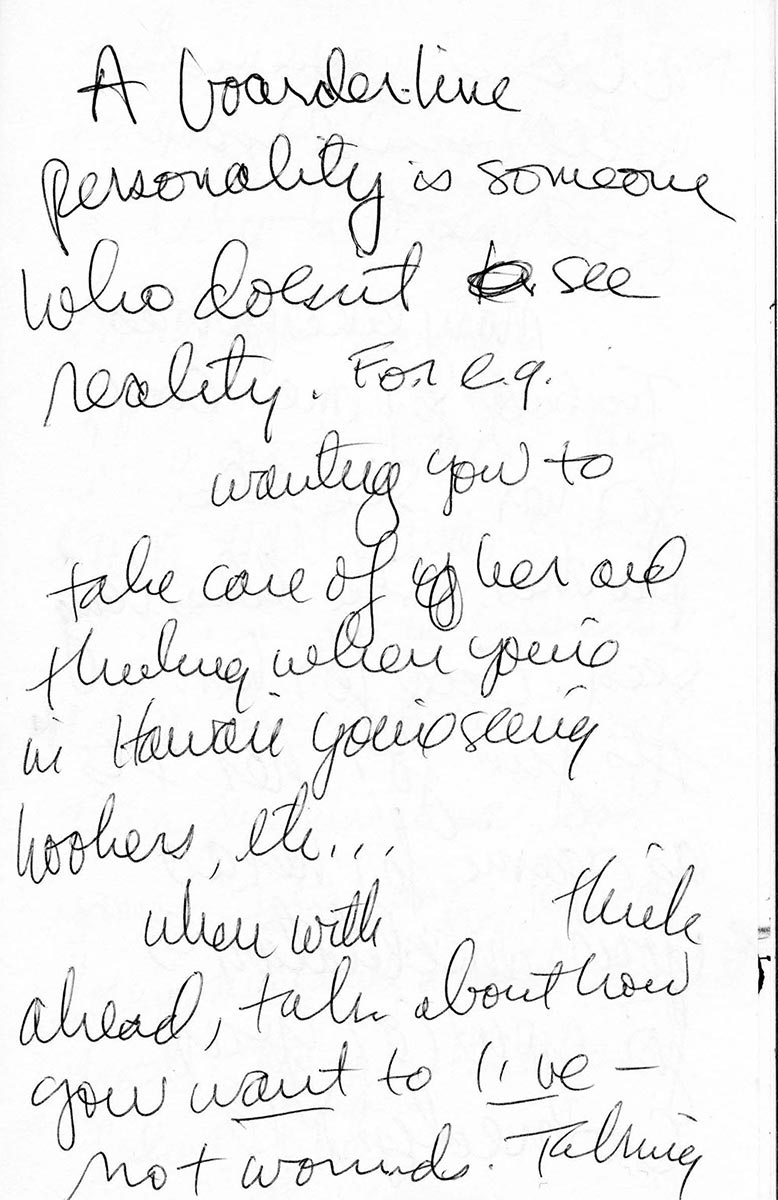 A boarder-line
personality is someone
who doesn't see
reality. For e.g.
wanting you to
take care of her and
thinking when you're
in Hawaii you're seeing
hookers, etc...
when with think
ahead, talk about how
you want to live –
not wounds. Talking